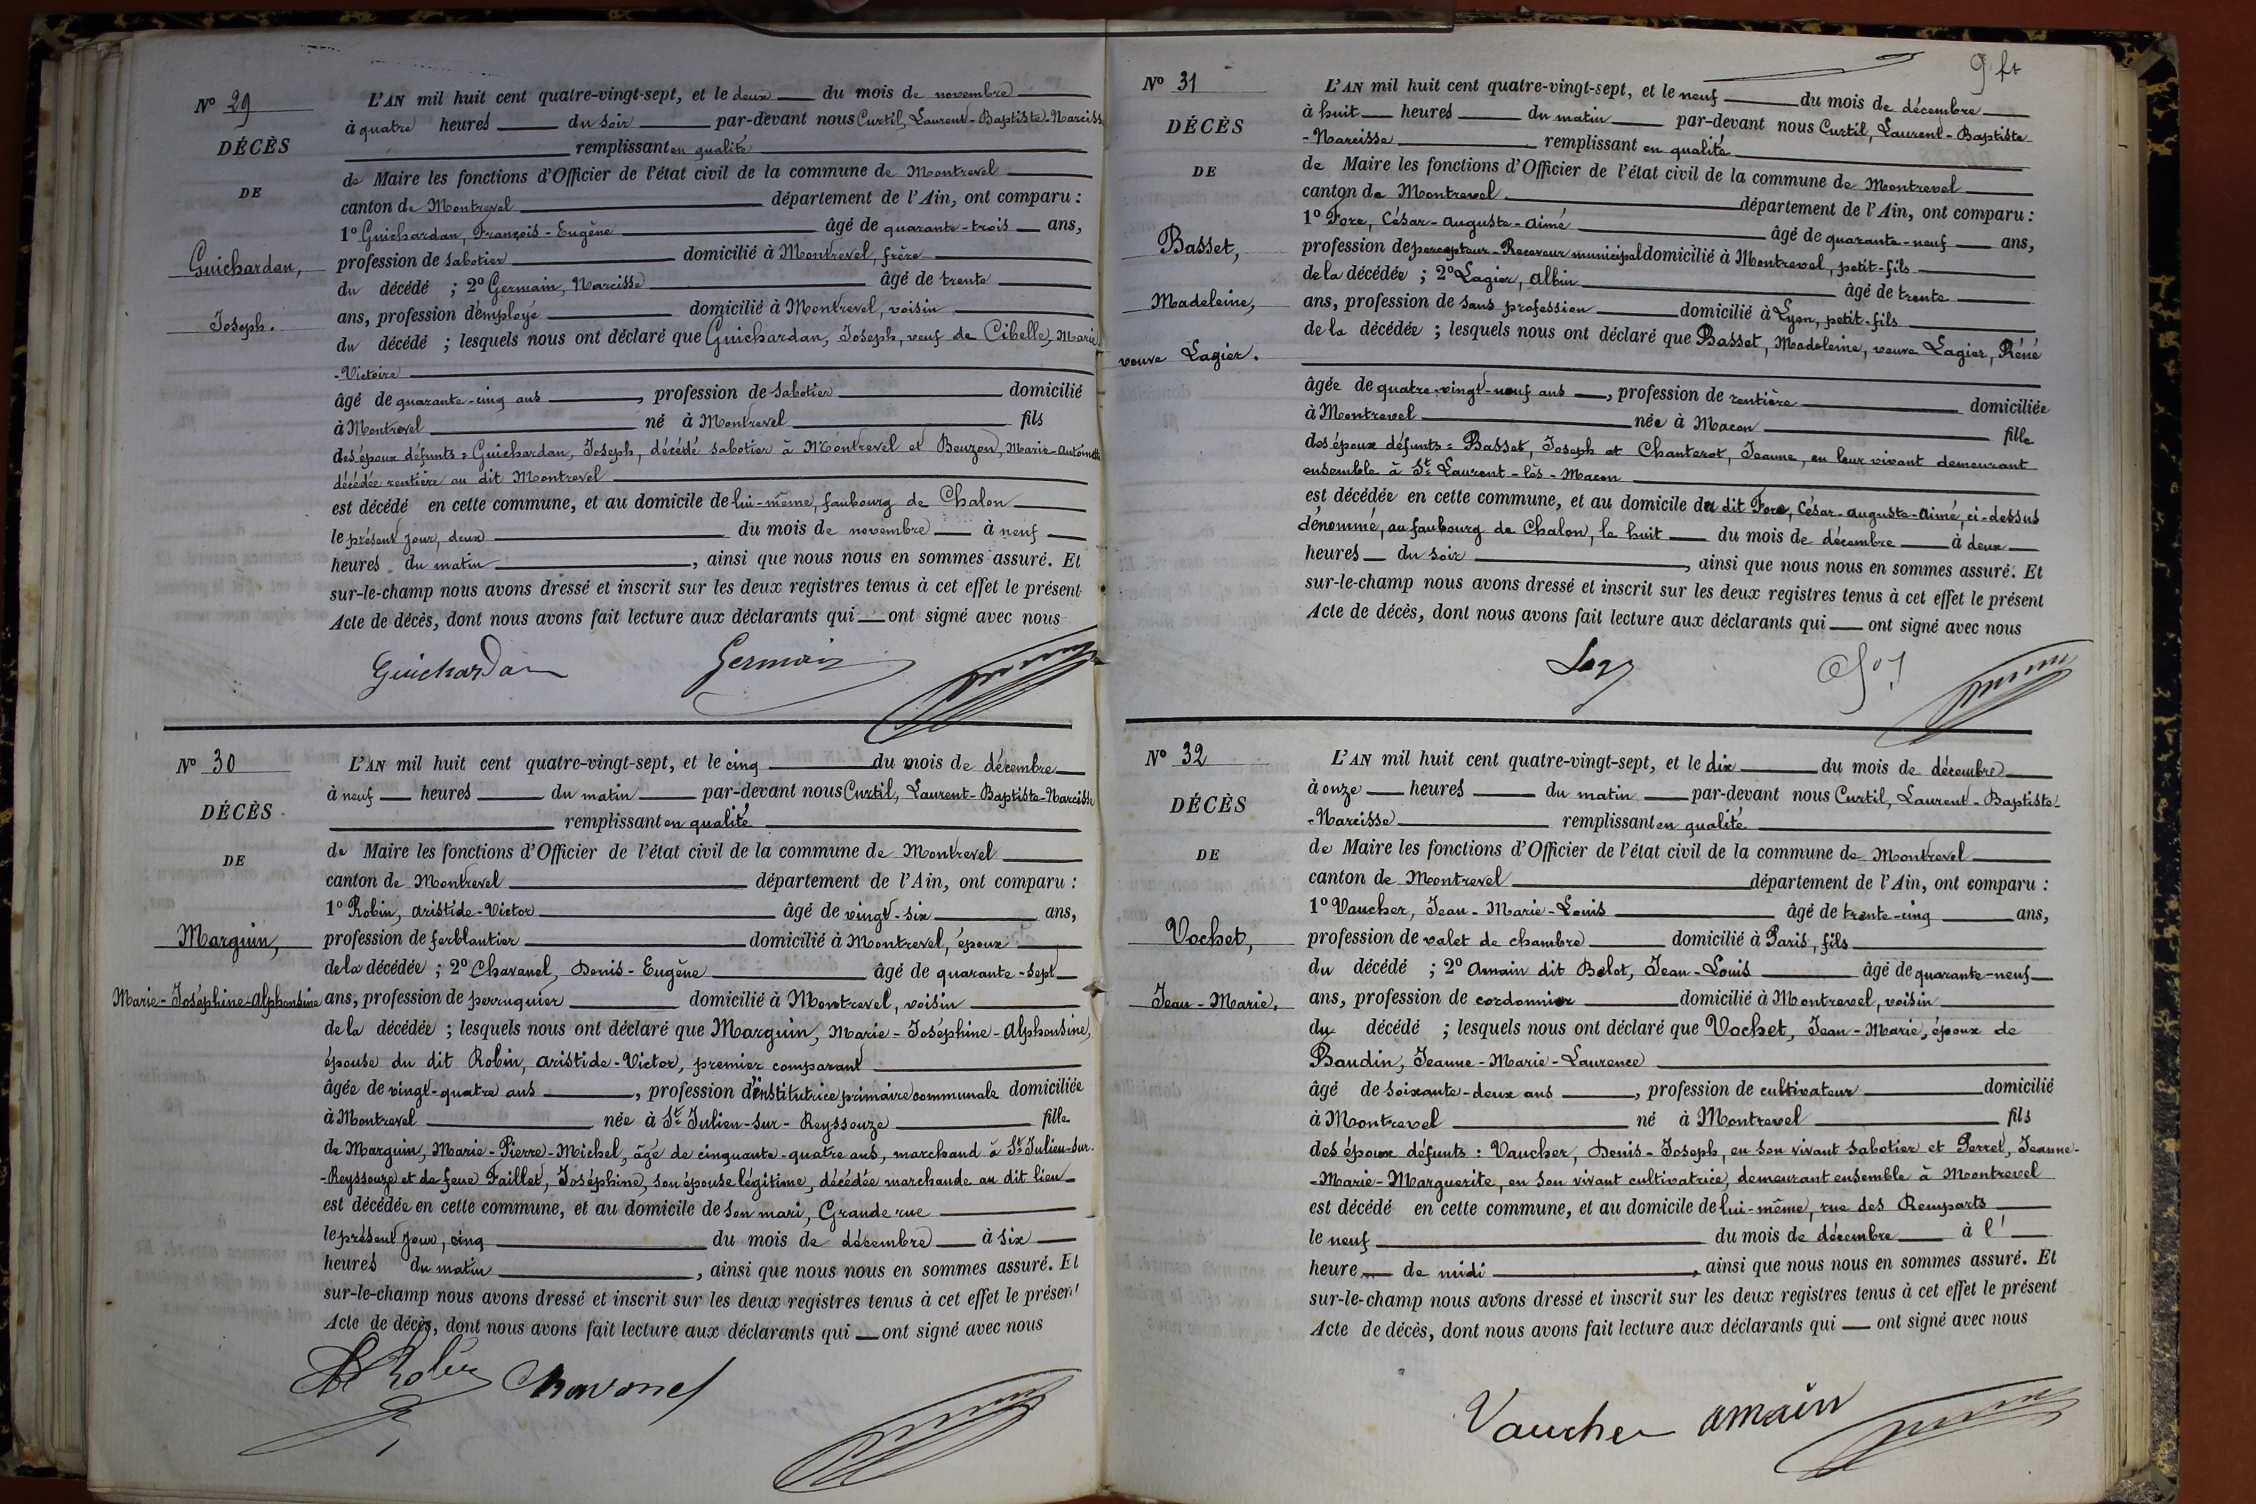 Nº 29
DÉCÈS
DE
Guichardan,
Joseph.
L'AN mil huit cent quatre-vingt-sept, et le deux du mois de novembre
à quatre heures du soir par-devant nous Curtil, Laurent-Baptiste-Narcisse
remplissant en qualité
de Maire les fonctions d'Officier de l'état civil de la commune de Montrevel
canton de Montrevel département de l'Ain, ont comparu :
1º Guichardan, François-Eugène âgé de quarante-trois ans,
profession de sabotier domicilié à Montrevel, frère
du décédé ; 2º Germain, Narcisse âgé de trente
ans, profession d'employé domicilié à Montrevel, voisin
du décédé ; lesquels nous ont déclaré que Guichardan, Joseph, veuf de Cibelle, Marie
-Victoire
âgé de quarante-cinq ans, profession de sabotier domicilié
à Montrevel né à Montrevel fils
des époux défunts = Guichardan, Joseph, décédé sabotier à Montrevel et Beuzon, Marie-Antoinette
décédée rentière au dit Montrevel
est décédé en cette commune, et au domicile de lui-même, faubourg de Chalon
le présent jour, deux du mois de novembre à neuf
heures du matin, ainsi que nous nous en sommes assuré. Et
sur-le-champ nous avons dressé et inscrit sur les deux registres tenus à cet effet le présent
Acte de décès, dont nous avons fait lecture aux déclarants qui ont signé avec nous
Guichardan Germain
Nº 30
DÉCÈS
DE
Marguin,
Marie-Joséphine-Alphonsine
L'AN mil huit cent quatre-vingt-sept, et le cinq du mois de décembre
à neuf heures du matin par-devant nous Curtil, Laurent-Baptiste-Narcisse
remplissant en qualité
de Maire les fonctions d'Officier de l'état civil de la commune de Montrevel
canton de Montrevel département de l'Ain, ont comparu :
1º Robin, Aristide-Victor âgé de vingt-six ans,
profession de ferblantier domicilié à Montrevel, époux
de la décédée ; 2º Chavanel, Denis-Eugène âgé de quarante-sept
ans, profession de perruquier domicilié à Montrevel, voisin
de la décédée ; lesquels nous ont déclaré que Marguin, Marie-Joséphine-Alphonsine,
épouse du dit Robin, Aristide-Victor, premier comparant
âgée de vingt-quatre ans, profession d'institutrice primaire communale domiciliée
à Montrevel née à St Julien-sur-Reyssouze fille
de Marguin, Marie-Pierre-Michel, âgé de cinquante-quatre ans, marchand à St Julien-sur-
-Reyssouze et de feue Faillet, Joséphine, son épouse légitime, décédée marchande au dit lieu
est décédée en cette commune, et au domicile de son mari, Grande rue
le présent jour, cinq du mois de décembre à six
heures du matin, ainsi que nous nous en sommes assuré. Et
sur-le-champ nous avons dressé et inscrit sur les deux registres tenus à cet effet le présent
Acte de décès, dont nous avons fait lecture aux déclarants qui ont signé avec nous
Robin Chavanel
9 ft
Nº 31
DÉCÈS
DE
Basset,
Madeleine,
veuve Lagier.
L'AN mil huit cent quatre-vingt-sept, et le neuf du mois de décembre
à huit heures du matin par-devant nous Curtil, Laurent-Baptiste
-Narcisse remplissant en qualité
de Maire les fonctions d'Officier de l'état civil de la commune de Montrevel
canton de Montrevel département de l'Ain, ont comparu :
1º Fore, César-Auguste-Aimé âgé de quarante-neuf ans,
profession de percepteur-Receveur municipal domicilié à Montrevel, petit-fils
de la décédée ; 2º Lagier, Albin âgé de trente
ans, profession de sans profession domicilié à Lyon, petit-fils
de la décédée ; lesquels nous ont déclaré que Basset, Madeleine, veuve Lagier, Réné
âgée de quatre-vingt-neuf ans, profession de rentière domiciliée
à Montrevel née à Macon fille
des époux défunts = Basset, Joseph et Chanterot, Jeanne, en leur vivant demeurant
ensemble à St Laurent-lès-Macon
est décédée en cette commune, et au domicile du dit Fore, César-Auguste-Aimé, ci-dessus
dénommé, au faubourg de Chalon, le huit du mois de décembre à deux
heures du soir, ainsi que nous nous en sommes assuré. Et
sur-le-champ nous avons dressé et inscrit sur les deux registres tenus à cet effet le présent
Acte de décès, dont nous avons fait lecture aux déclarants qui ont signé avec nous
Nº 32
DÉCÈS
DE
Vochet,
Jean-Marie,
L'AN mil huit cent quatre-vingt-sept, et le dix du mois de décembre
à onze heures du matin par-devant nous Curtil, Laurent-Baptiste-
-Narcisse remplissant en qualité
de Maire les fonctions d'Officier de l'état civil de la commune de Montrevel
canton de Montrevel département de l'Ain, ont comparu :
1º Vaucher, Jean-Marie-Louis âgé de trente-cinq ans,
profession de valet de chambre domicilié à Paris, fils
du décédé ; 2º Amain dit Belot, Jean-Louis âgé de quarante-neuf
ans, profession de cordonnier domicilié à Montrevel, voisin
du décédé ; lesquels nous ont déclaré que Vochet, Jean-Marie, époux de
Baudin, Jeanne-Marie-Laurence
âgé de soixante-deux ans, profession de cultivateur domicilié
à Montrevel né à Montrevel fils
des époux défunts : Vaucher, Denis-Joseph, en son vivant sabotier et Perret, Jeanne-
-Marie-Marguerite, en son vivant cultivatrice, demeurant ensemble à Montrevel
est décédé en cette commune, et au domicile de lui-même, rue des Remparts
le neuf du mois de décembre à l'
heure de midi, ainsi que nous nous en sommes assuré. Et
sur-le-champ nous avons dressé et inscrit sur les deux registres tenus à cet effet le présent
Acte de décès, dont nous avons fait lecture aux déclarants qui ont signé avec nous
Vaucher amain